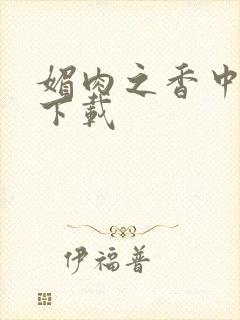 媚肉之香中
下載
伊福普